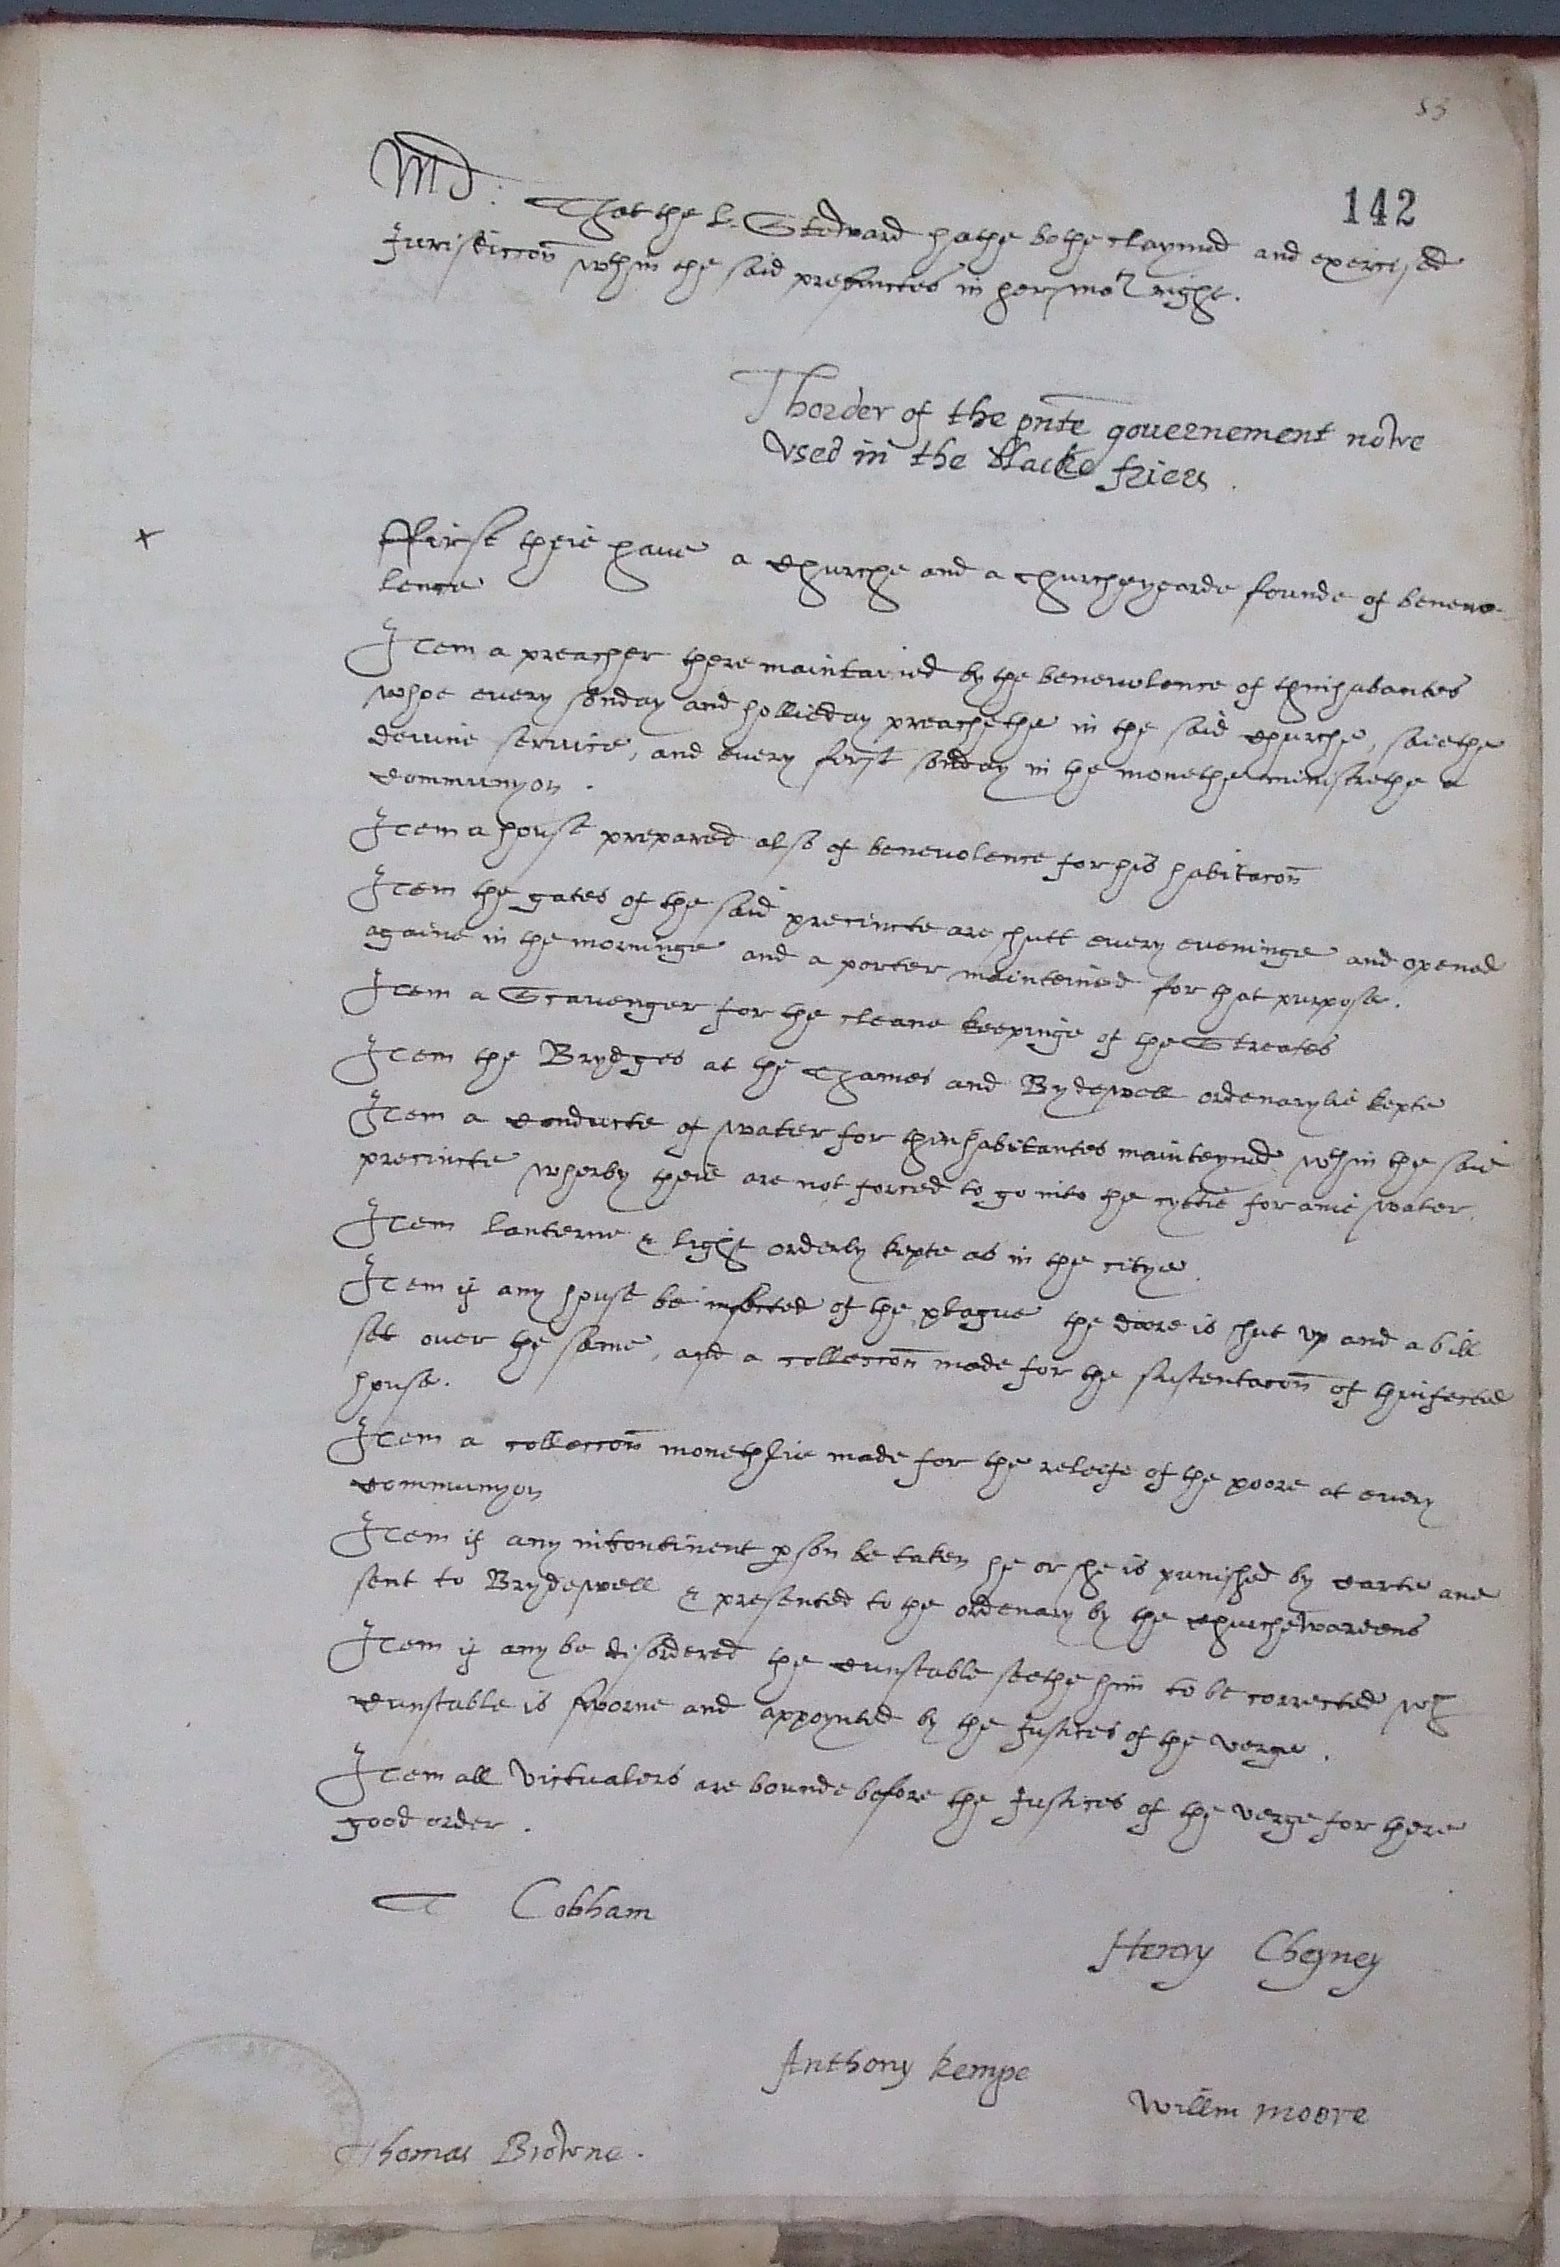 53
142
Md: That the L. Steward hathe bothe claymed and exercised
Jurisdiccon wthin the said precinctes in her mats right.
Thorder of the pnte gouernement nowe
vsed in the blacke friers.
x
First theie haue a Churche and a churcheyearde founde of beneuo-
lence
Item a preacher there maintained by the beneuolence of thinhabantes
whoe euery sonday and hollieday preachethe in the said Churche, saiethe
deuine seruice, and euery first sonday in the monethe ministrethe a
Communyon.
Item a house prepared also of beneuolence for his habitacon
Item the gates of the said precincte are shutt euery eveninge and opened
againe in the morninge and a porter mainteined for that purpose.
Item a Scauenger for the cleane keepinge of the Streates
Item the Brydges at the Thames and Brydewell ordenarylie kepte
Item a Conducte of water for thinhabitantes mainteyned wthin the said
precincte wherby theie are not forced to go into the cyttie for anie water.
Item lanterne & light orderly kepte as in the citye.
Item if any house be infected of the plague the doore is shut vp and a bill
set ouer the same, and a colleccon made for the sustentacon of thinfected
house.
Item a colleccon monethlie made for the releife of the poore at euery
Communyon
Item if any incontinent pson be taken he or she is punished by Carte and
sent to Brydewell & presented to the ordenary by the Churchewardens
Item if any be disordered the Cunstable seethe him to be corrected wch
Cunstable is sworne and appoynted by the Justices of the verge.
Item all Victualers are bounde before the Justices of the verge for there
good order.
Cobham
Henry Cheyney
Anthony Kempe
Willm Moore
Thomas Browne.